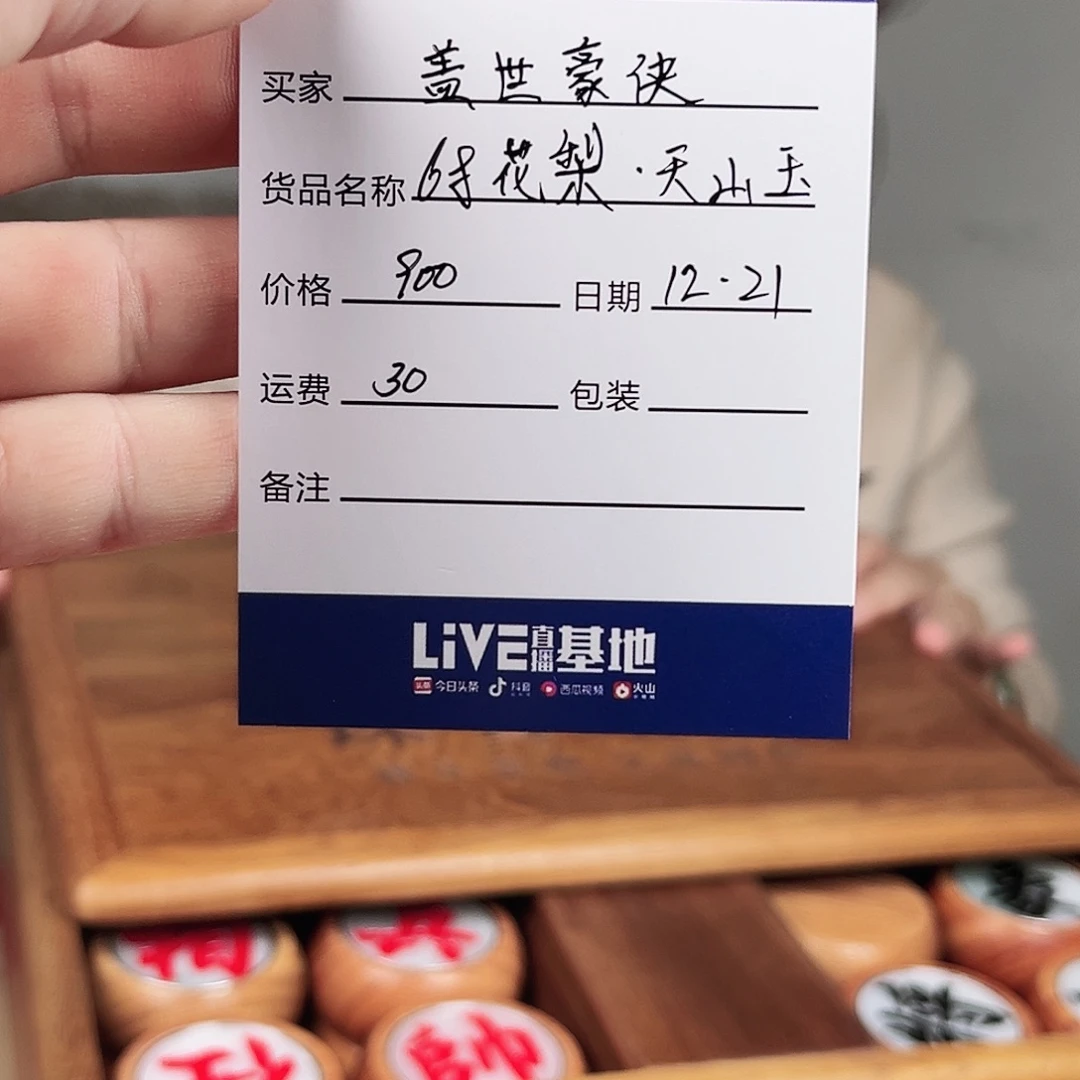 买家 盖世豪侠
货品名称 6寸花梨·天山玉
价格 900 日期 12·21
运费 30 包装
备注
LiVE直播基地
头条 今日头条 抖音 西瓜视频 火山
相 兵
帥